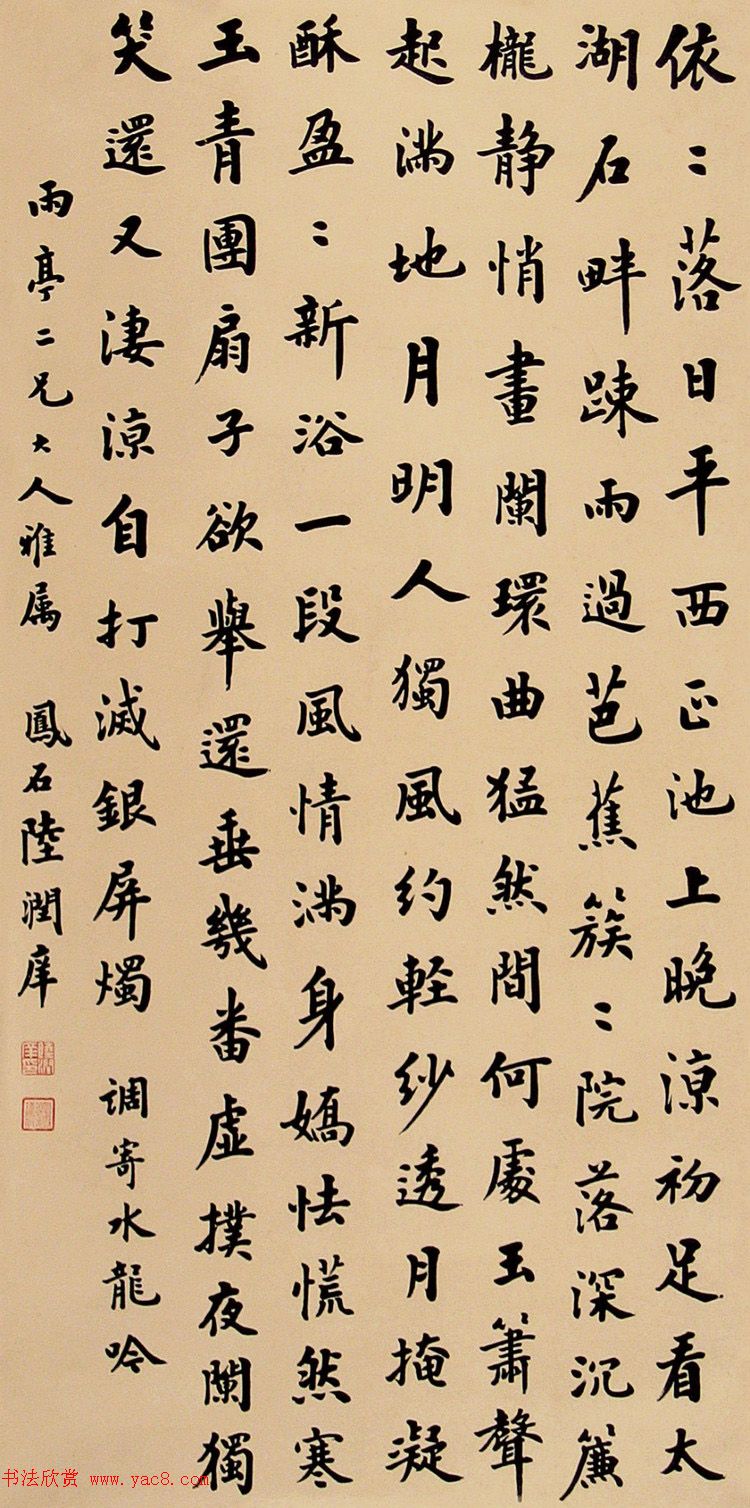 依〻落日平西正池上晚涼初足看太
湖石畔疎雨過芭蕉簇〻院落深沉簾
櫳静悄畫闌環曲猛然間何處玉簫聲
起满地月明人獨風約輕紗透月掩凝
酥盈〻新浴一段風情满身嬌怯慌然寒
玉青團扇子欲舉還垂幾番虛撲夜闌獨
笑還又淒涼自打滅銀屏燭 调寄水龍吟
雨亭二兄大人雅属 鳳石陸潤庠
书法欣赏 www.yac8.com